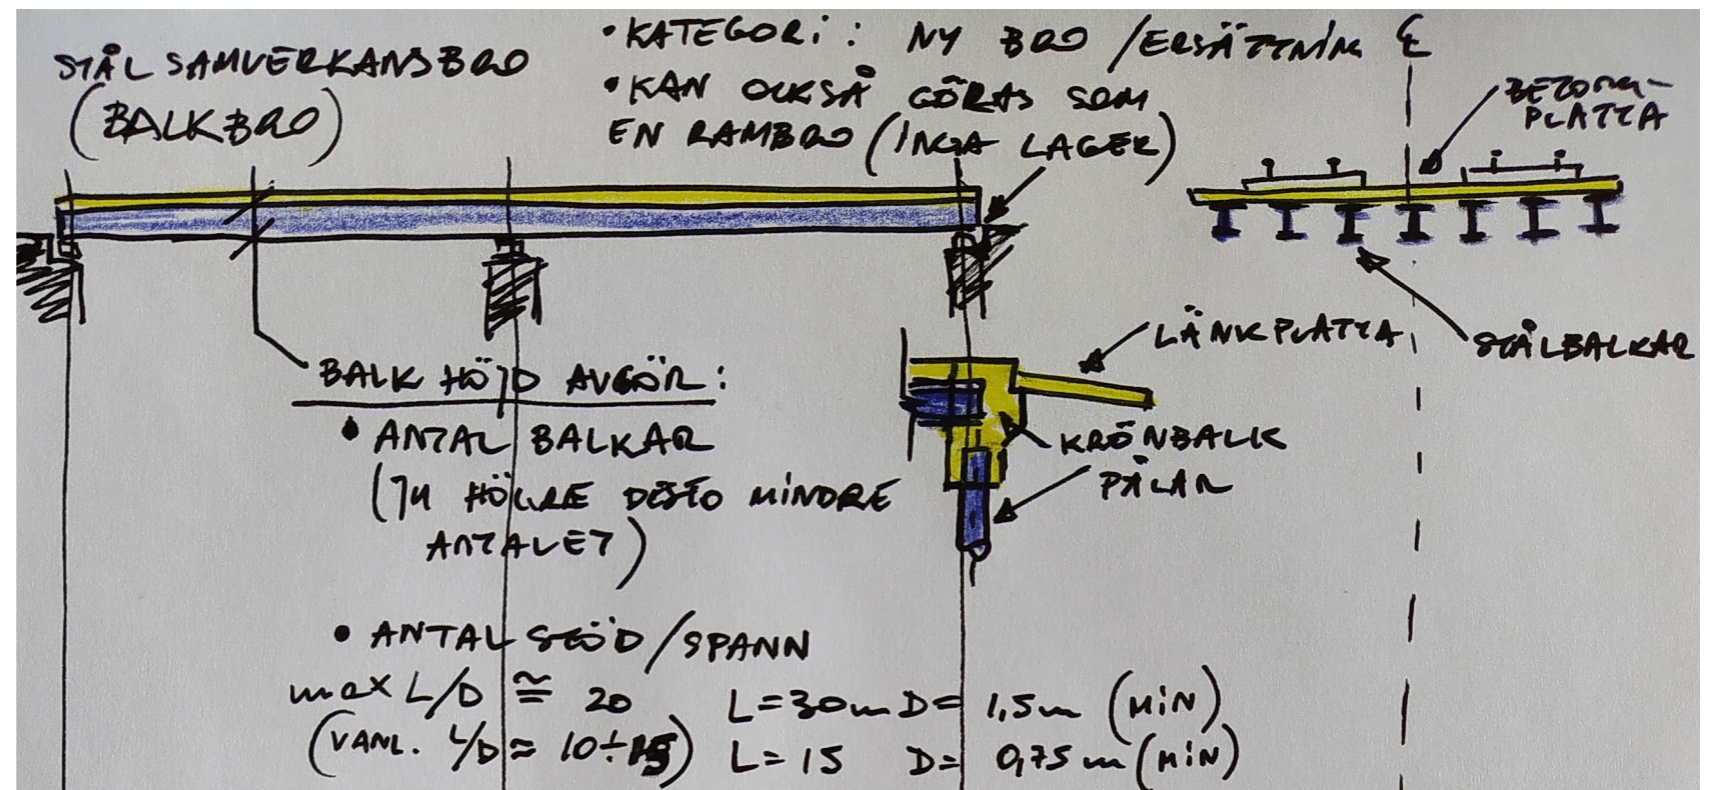 STÅLSAMVERKANSBRO
(BALKBRO)
• KATEGORI: NY BRO /ERSÄTTNIN
• KAN OCKSÅ GÖRAS SOM
EN RAMBRO (INGA LAGER)
℄
BETONG-
PLATTA
STÅLBALKAR
LÄNKPLATTA
KRÖNBALK
PÅLAR
BALKHÖJD AVGÖR:
• ANTAL BALKAR
(JU HÖGRE DESTO MINDRE
ANTALET)
• ANTAL STÖD/SPANN
max L/D ≅ 20 L=30m D= 1,5m (MIN)
(VANL. L/D ≈ 10÷15) L=15 D= 0,75m (MIN)